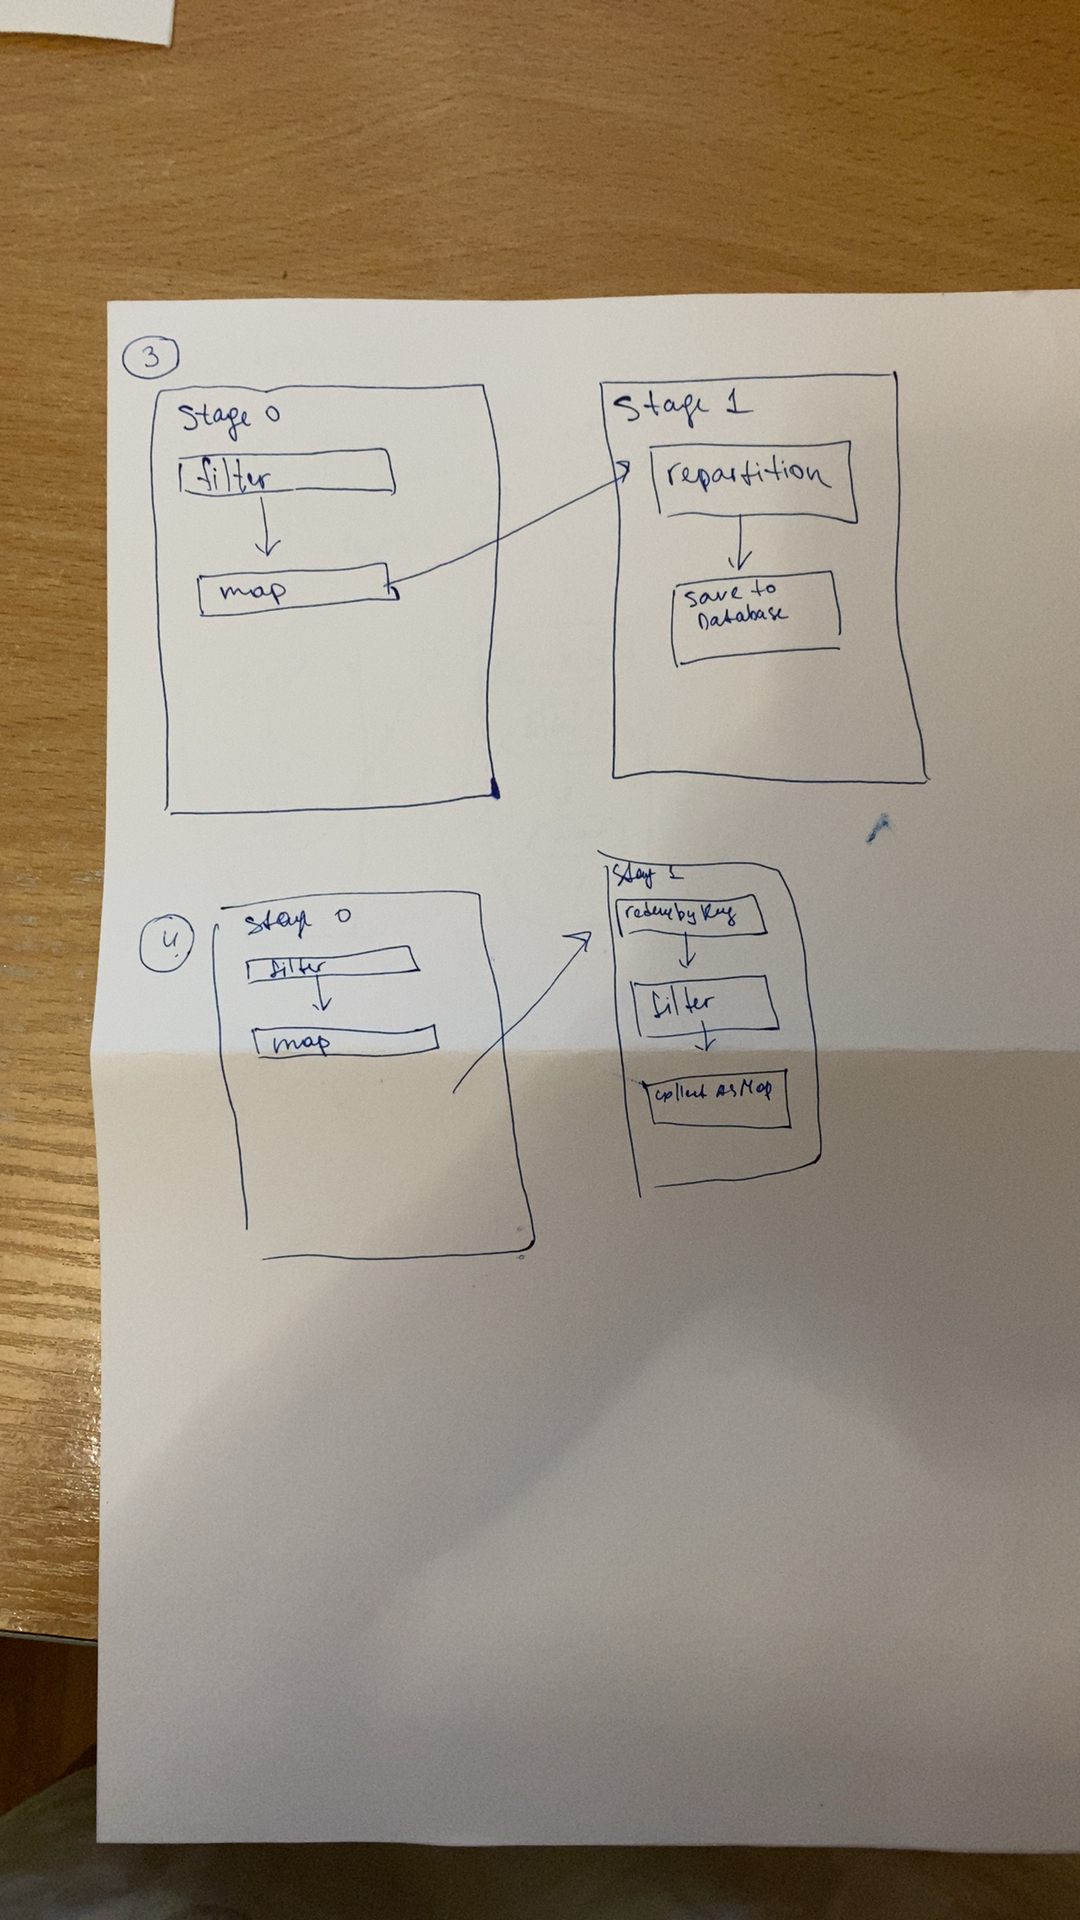 3
Stage 0
filter
map
Stage 1
repartition
save to
Database
4
Stage 0
filter
map
Stage 1
reduce by Key
filter
collect As Map